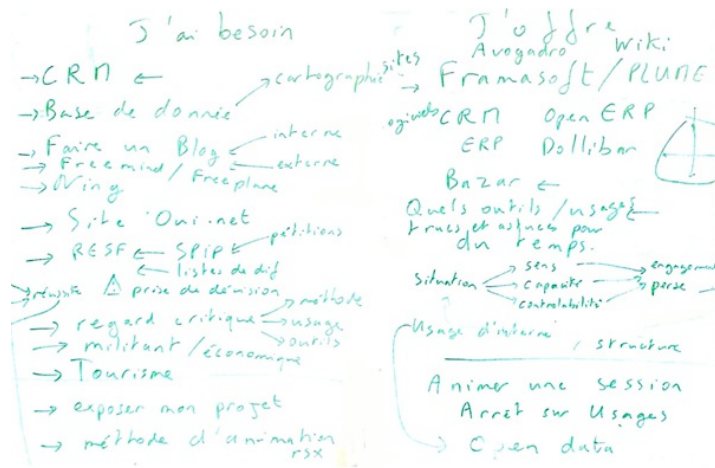 J'ai besoin
→ CRM ←
cartographie
→ Base de donnée
→ Faire un Blog
interne
externe
→ Freemind / Freeplane
→ Ning
→ Site Oui.net
→ RESF ← SPIP
pétitions
listes de dif
réussite ⚠ prise de décision
→ regard critique
méthode
usage
outils
→ militant / économique
→ Tourisme
→ exposer mon projet
→ méthode d'animation
rsx
J'offre
Avogadro Wiki
sites → Framasoft / PLUME
logiciels CRM Open ERP
ERP Dollibar
Bazar ←
Quels outils / usages
trucs et astuces pour
du temps.
situation
sens
capacité
controlabilité
engagement
Usage d'interne
, structure
Animer une session
Arrêt sur Usages
→ Open data